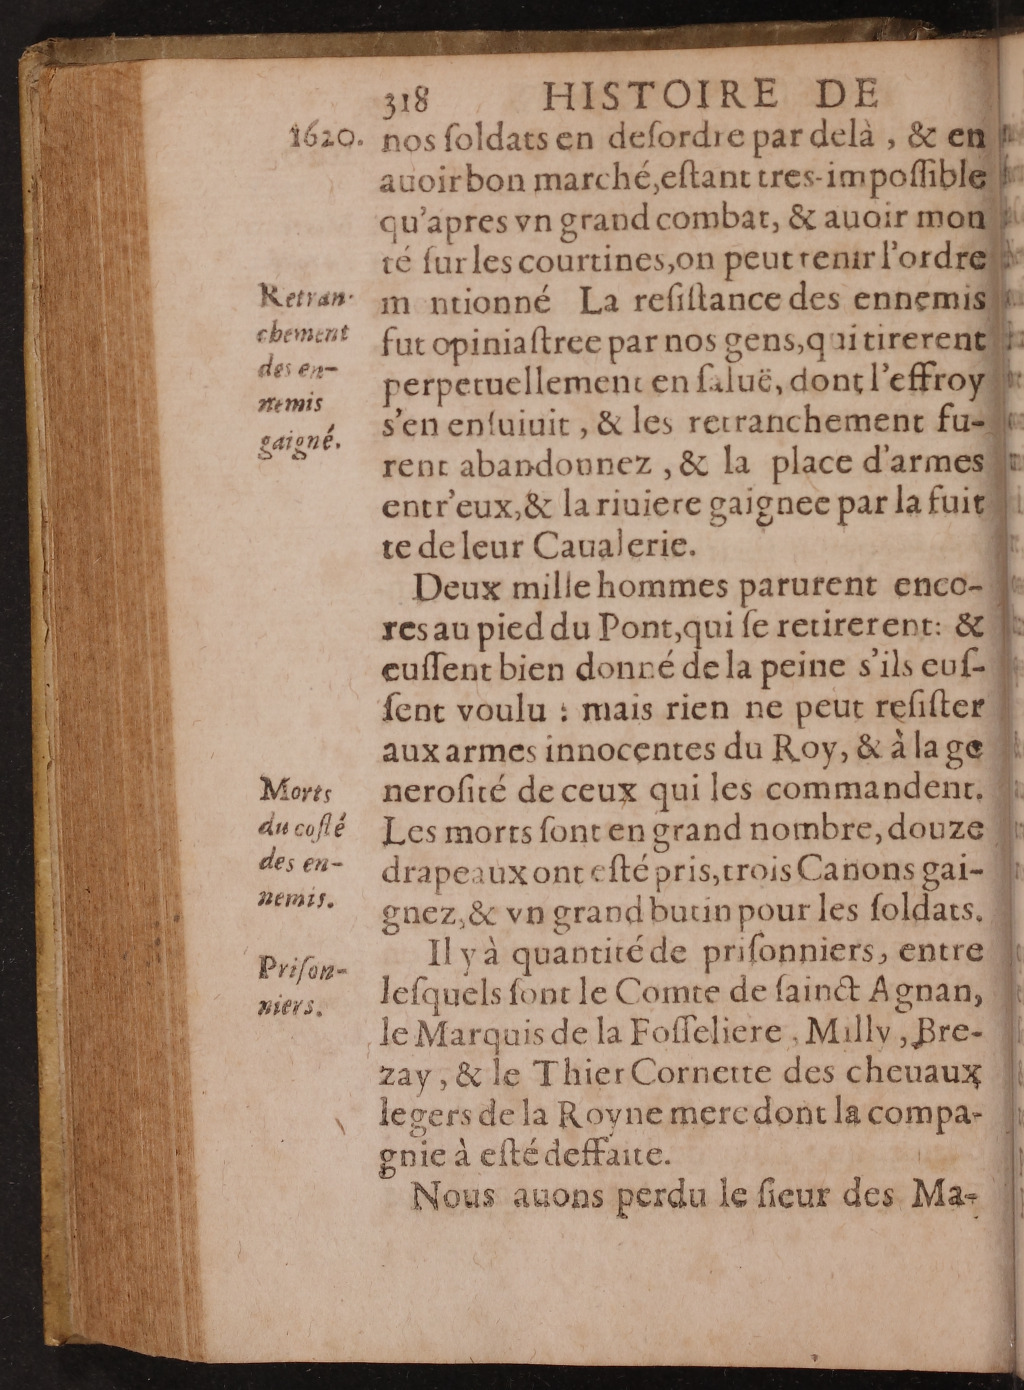 318 HISTOIRE DE
1620. nos ſoldats en deſordre par delà, & en
auoir bon marché, eſtant tres-impoſſible
qu'apres vn grand combat, & auoir mon
té ſur les courtines, on peut tenir l'ordre
Retran-
chement
des en-
nemis
gaigné.
m ntionné La reſiſtance des ennemis
fut opiniaſtree par nos gens, qui tirerent
perpetuellement en ſaluë, dont l'effroy
s'en enſuiuit, & les retranchement fu-
rent abandonnez, & la place d'armes
entr'eux, & la riuiere gaignee par la fuit
te de leur Caualerie.
Deux mille hommes parurent enco-
res au pied du Pont, qui ſe retirerent: &
euſſent bien donné de la peine s'ils euſ-
ſent voulu : mais rien ne peut reſiſter
aux armes innocentes du Roy, & à la ge
Morts
du coſté
des en-
nemis.
neroſité de ceux qui les commandent.
Les morts ſont en grand nombre, douze
drapeaux ont eſté pris, trois Canons gai-
gnez, & vn grand butin pour les ſoldats.
Priſon-
niers.
Il y à quantité de priſonniers, entre
leſquels ſont le Comte de ſainct Agnan,
le Marquis de la Foſſeliere, Milly, Bre-
zay, & le Thier Cornette des cheuaux
legers de la Royne mere dont la compa-
gnie à eſté deffaite.
Nous auons perdu le ſieur des Ma-